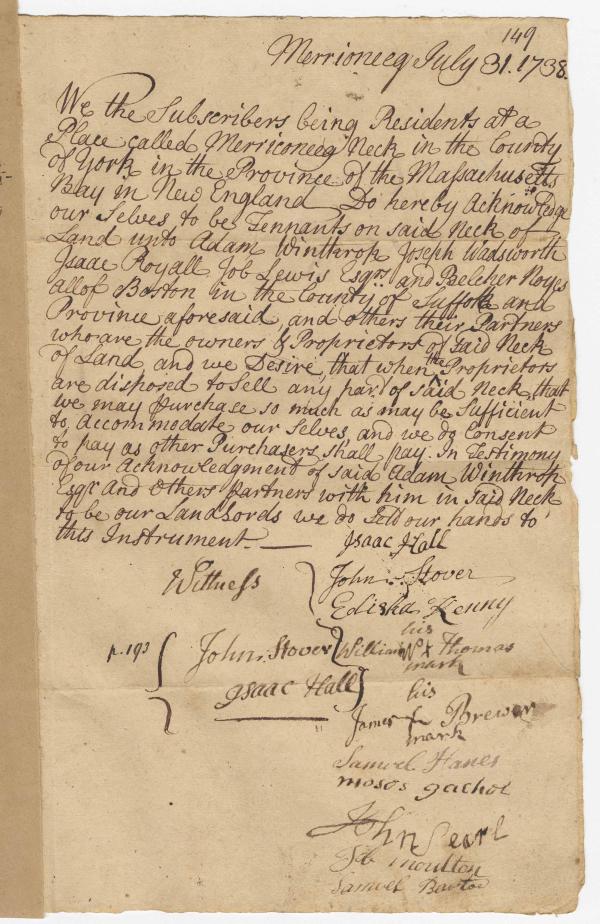 149
Merrioneeg July 31. 1738.
We the Subscribers being Residents at a
Place called Merriconeeg Neck in the County
of York in the Province of the Massachusetts
Bay in New England Do hereby Acknowledge
our Selves to be Tennants on said Neck of
Land unto Adam Winthrop Joseph Wadsworth
Isaac Royall Job Lewis Esqrs. and Belcher Noyes
all of Boston in the County of Suffolk and
Province aforesaid, and others their Partners
who are the owners & Proprietors of said Neck
of Land and we Desire, that when the Proprietors
are disposed to Sell any part of said Neck, that
we may Purchase so much as may be Sufficient
to, accommodate our Selves, and we do Consent
to pay as other Purchasers shall pay. In Testimony
of our Acknowledgment of said Adam Winthrop
Esqr. and Others Partners with him in said Neck
to be our Landlords we do Sett our hands to
this Instrument.
Isaac Hall
Wittness
John Stover
Edisha Kenny
his
William W Thomas
mark
p. 193
John Stover
Isaac Hall
his
James Brewer
mark
Samuel Hanes
moses gachel
John Pearl
Job moulton
Samuel Barto